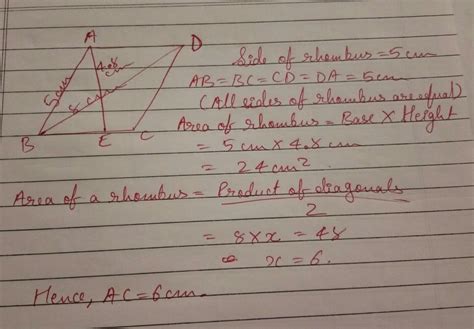 A
D
4.8 cm
5cm
8 cm
B
E
C
Side of rhombus = 5 cm
AB = BC = CD = DA = 5cm
(All sides of rhombus are equal)
Area of rhombus = Base × Height
= 5 cm × 4.8 cm
= 24 cm².
Area of a rhombus = Product of diagonals
2
= 8 × x = 48
x = 6.
Hence, AC = 6 cm.